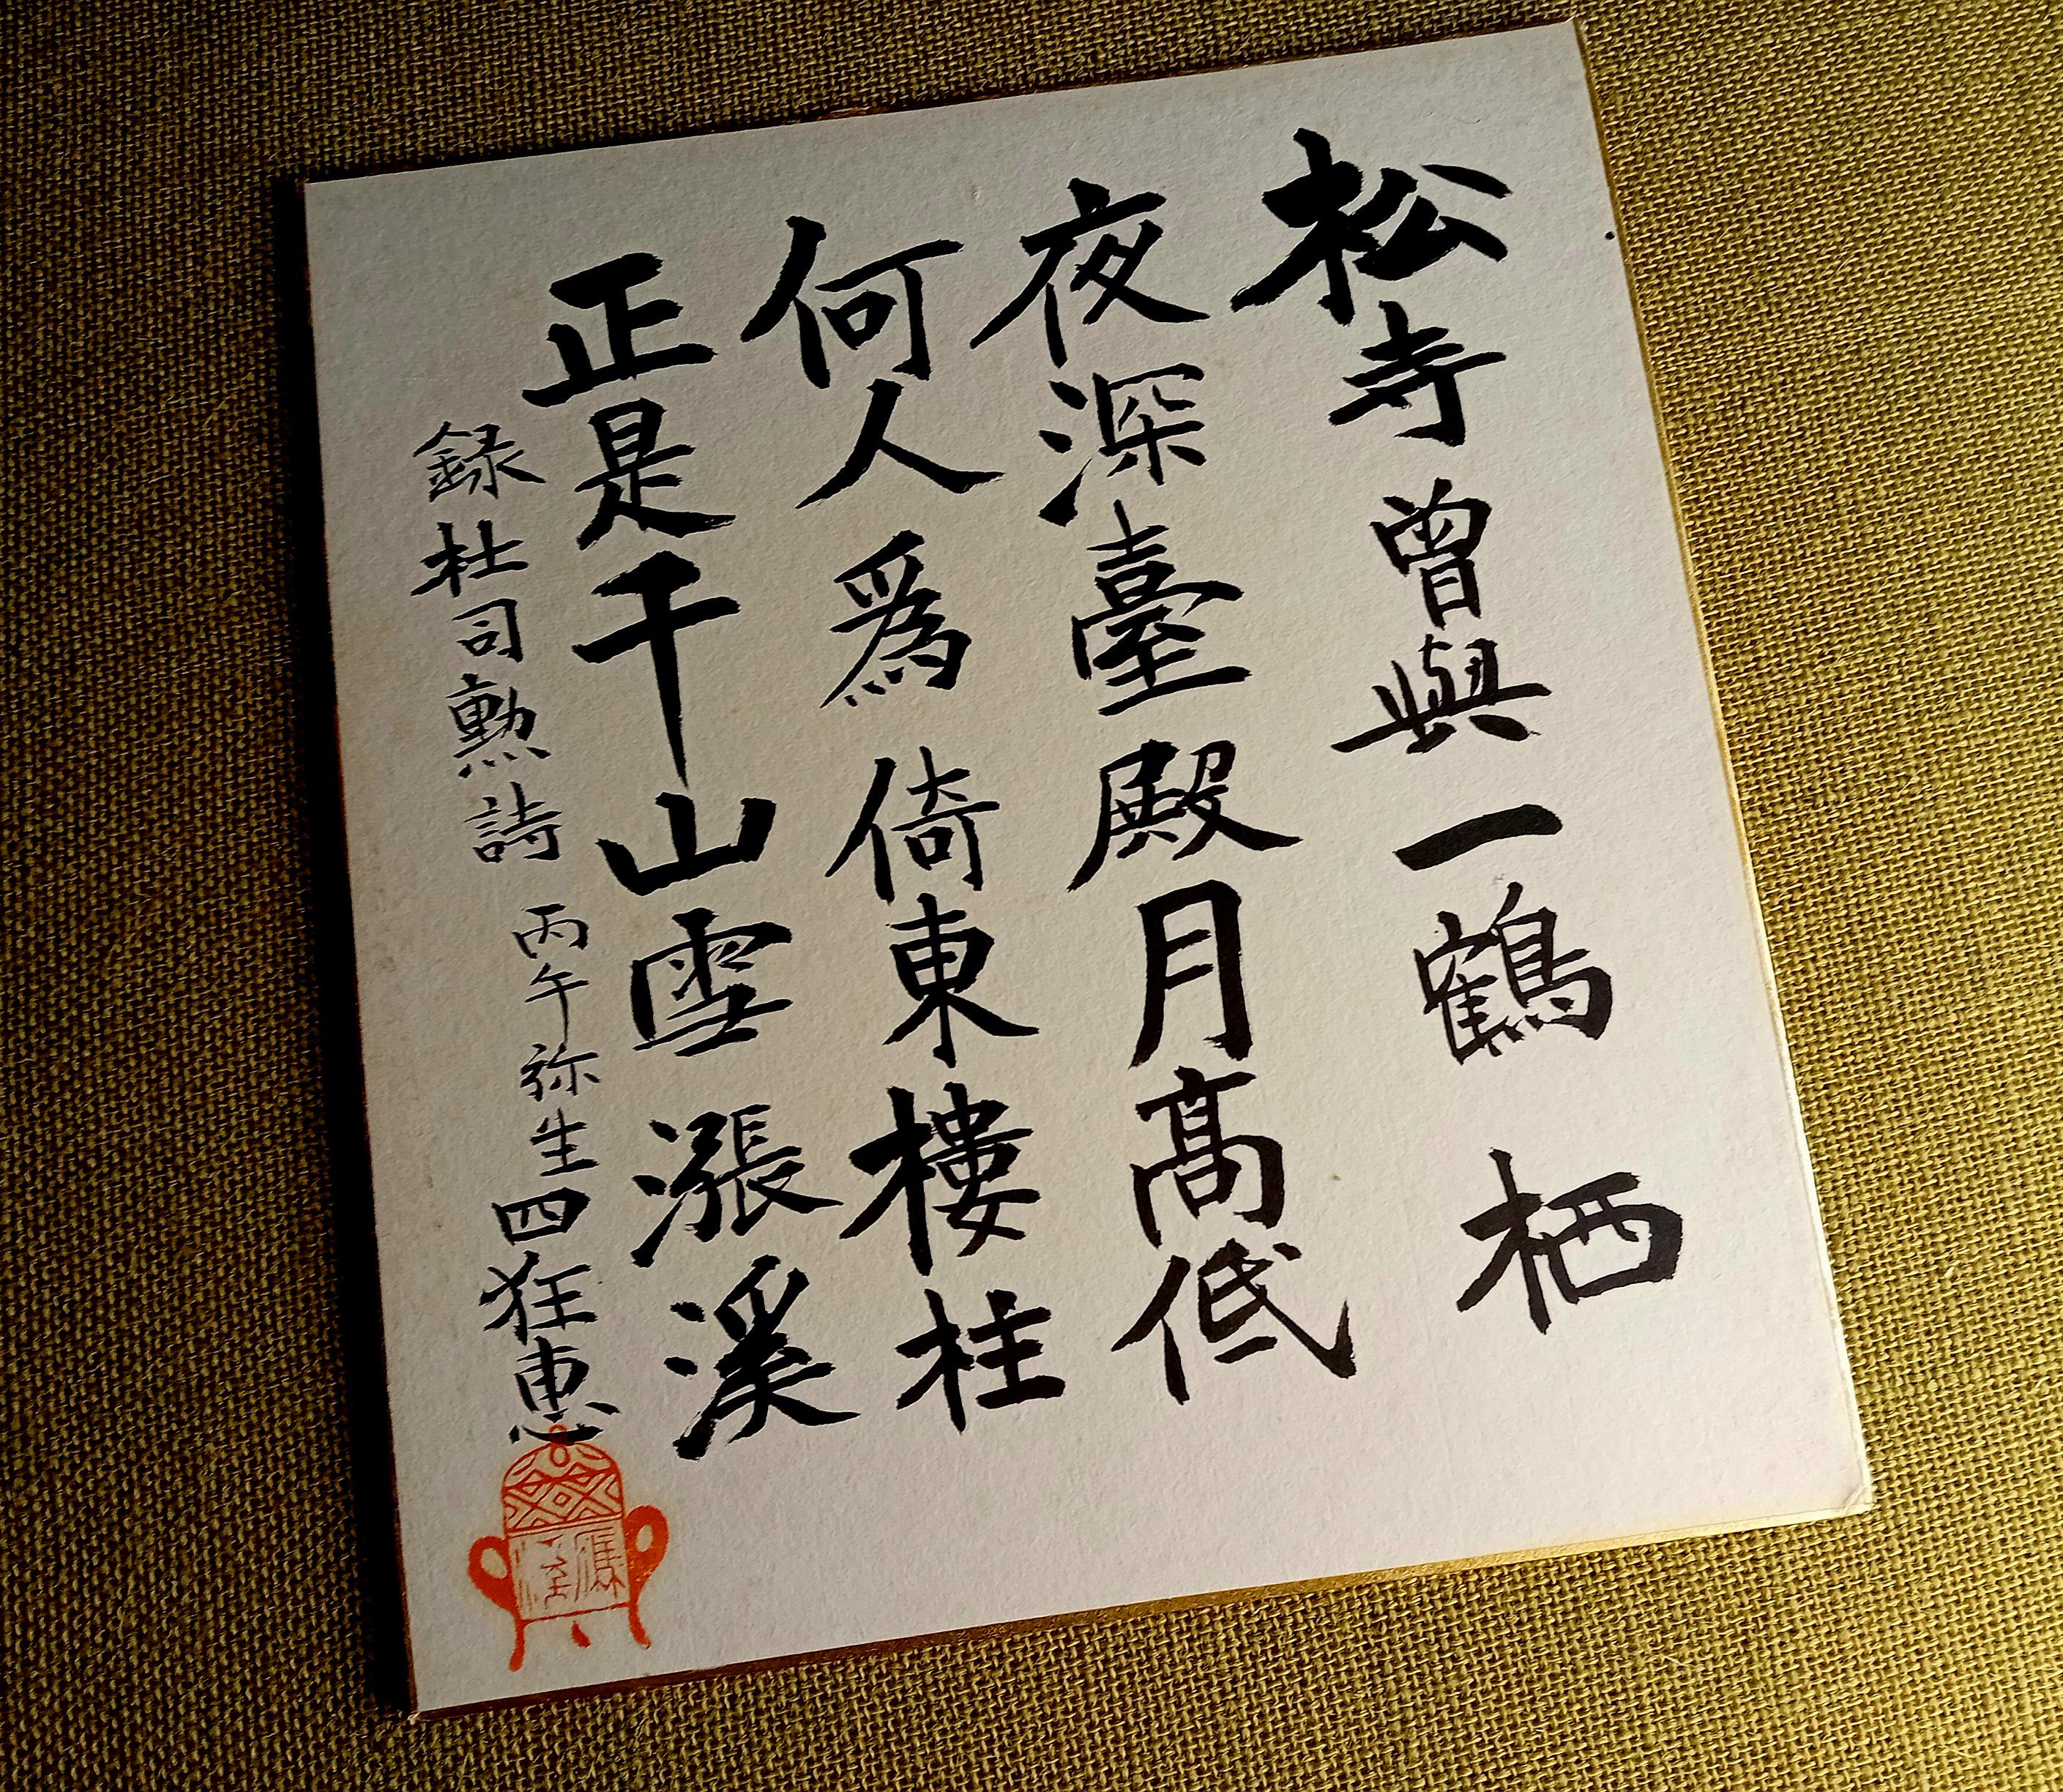 松寺曾與一鶴栖
夜深臺殿月高低
何人爲倚東樓柱
正是千山雪漲溪
録杜司勲詩 丙午弥生四狂恵